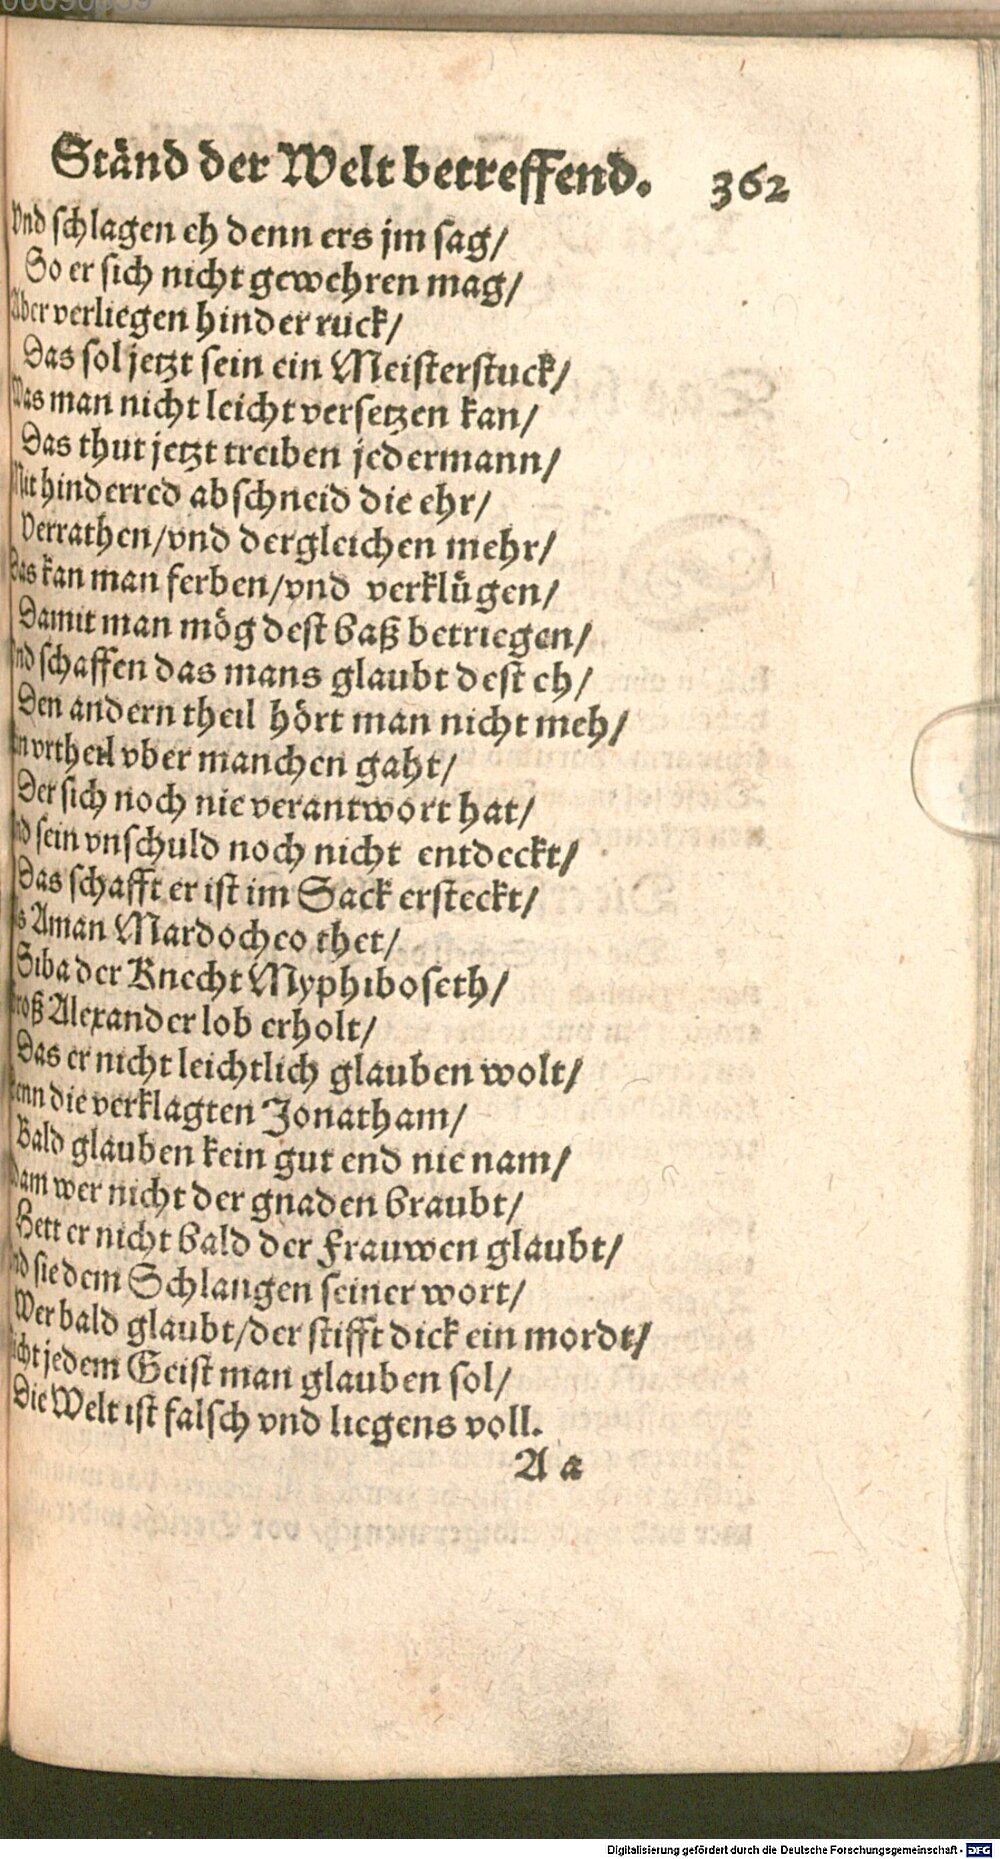 Ständ der Welt betreffend. 362
Vnd schlagen eh denn ers jm sag/
So er sich nicht gewehren mag/
Aber verliegen hinder ruck/
Das sol jetzt sein ein Meisterstuck/
Das man nicht leicht versetzen kan/
Das thut jetzt treiben jedermann/
Mit hinderred abschneid die ehr/
Verrathen/vnd dergleichen mehr/
Das kan man ferben/vnd verklůgen/
Damit man mög dest baß betriegen/
Vnd schaffen das mans glaubt dest eh/
Den andern theil hört man nicht meh/
vrtheil vber manchen gaht/
Der sich noch nie verantwort hat/
Vnd sein vnschuld noch nicht entdeckt/
Das schafft er ist im Sack ersteckt/
Aman Mardocheo thet/
Siba der Knecht Myphiboseth/
Groß Alexander lob erholt/
Das er nicht leichtlich glauben wolt/
Denn die verklagten Jonatham/
Bald glauben kein gut end nie nam/
Adam wer nicht der gnaden braubt/
Hett er nicht bald der Frauwen glaubt/
Vnd sie dem Schlangen seiner wort/
Wer bald glaubt/der stifft dick ein mordt/
Nicht jedem Geist man glauben sol/
Die Welt ist falsch vnd liegens voll.
A a
Digitalisierung gefördert durch die Deutsche Forschungsgemeinschaft - DFG